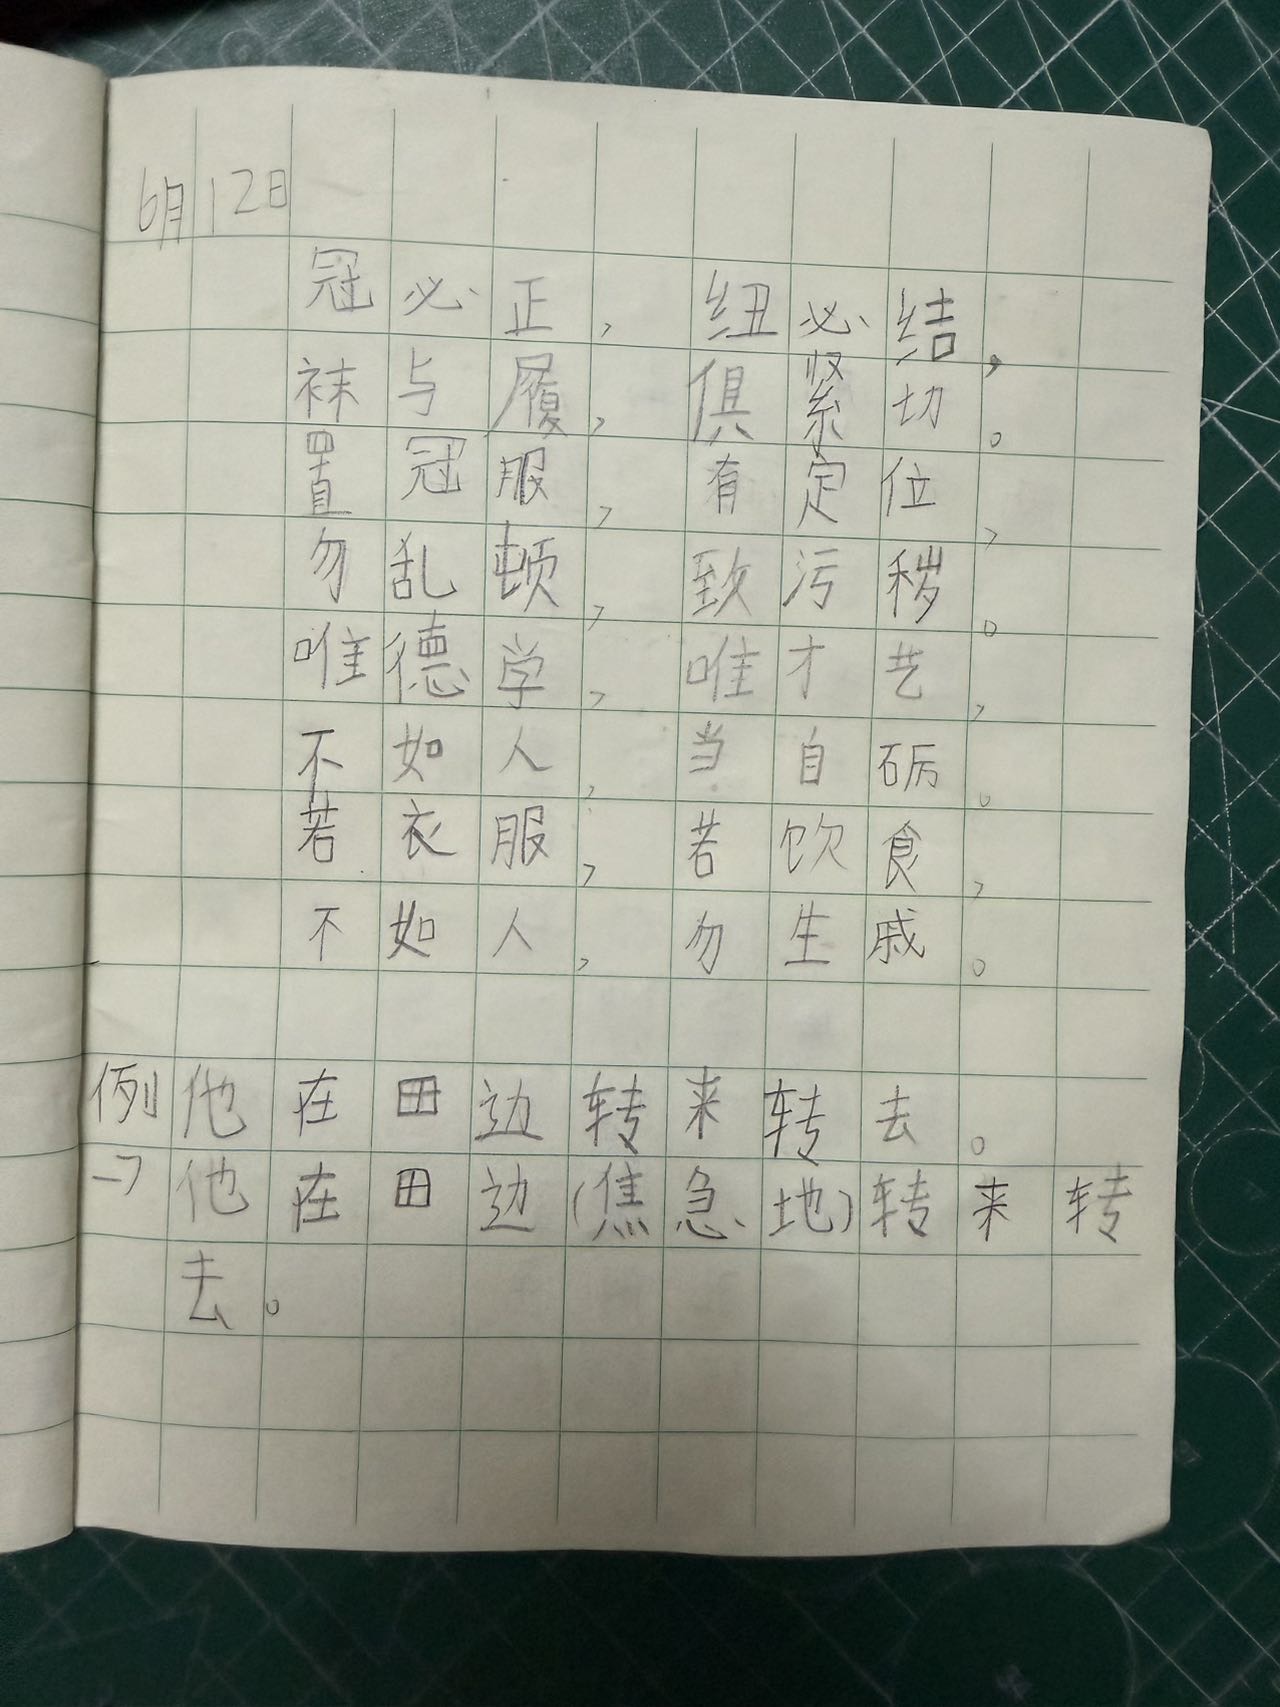 6月12日
冠必正，纽必结，
袜与履，俱紧切。
置冠服，有定位，
勿乱顿，致污秽。
唯德学，唯才艺，
不如人，当自砺。
若衣服，若饮食，
不如人，勿生戚。
例他在田边转来转去。
→他在田边(焦急地)转来转
去。